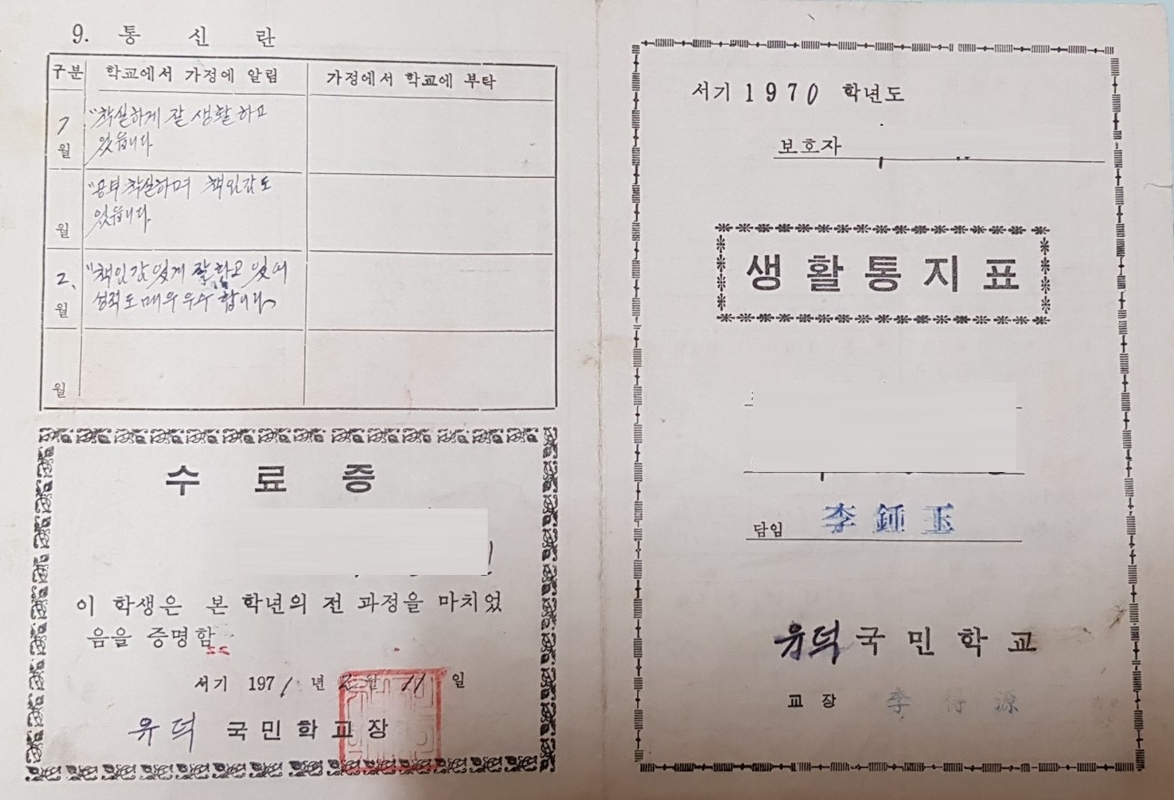 9. 통 신 란
구분 학교에서 가정에 알림 가정에서 학교에 부탁
7월 "착실하게 잘 생활하고
있읍니다
월 "공부 착실하며 책임감도
있읍니다
2.월 "책임감 있게 잘하고 있어
성적도 매우 우수 합니다
월
수 료 증
이 학생은 본 학년의 전 과정을 마치었
음을 증명함
서기 1971년 2월 11일
유덕 국민학교장
서기 1970 학년도
보호자
생활통지표
담임 李鍾玉
유덕국민학교
교장 李 源